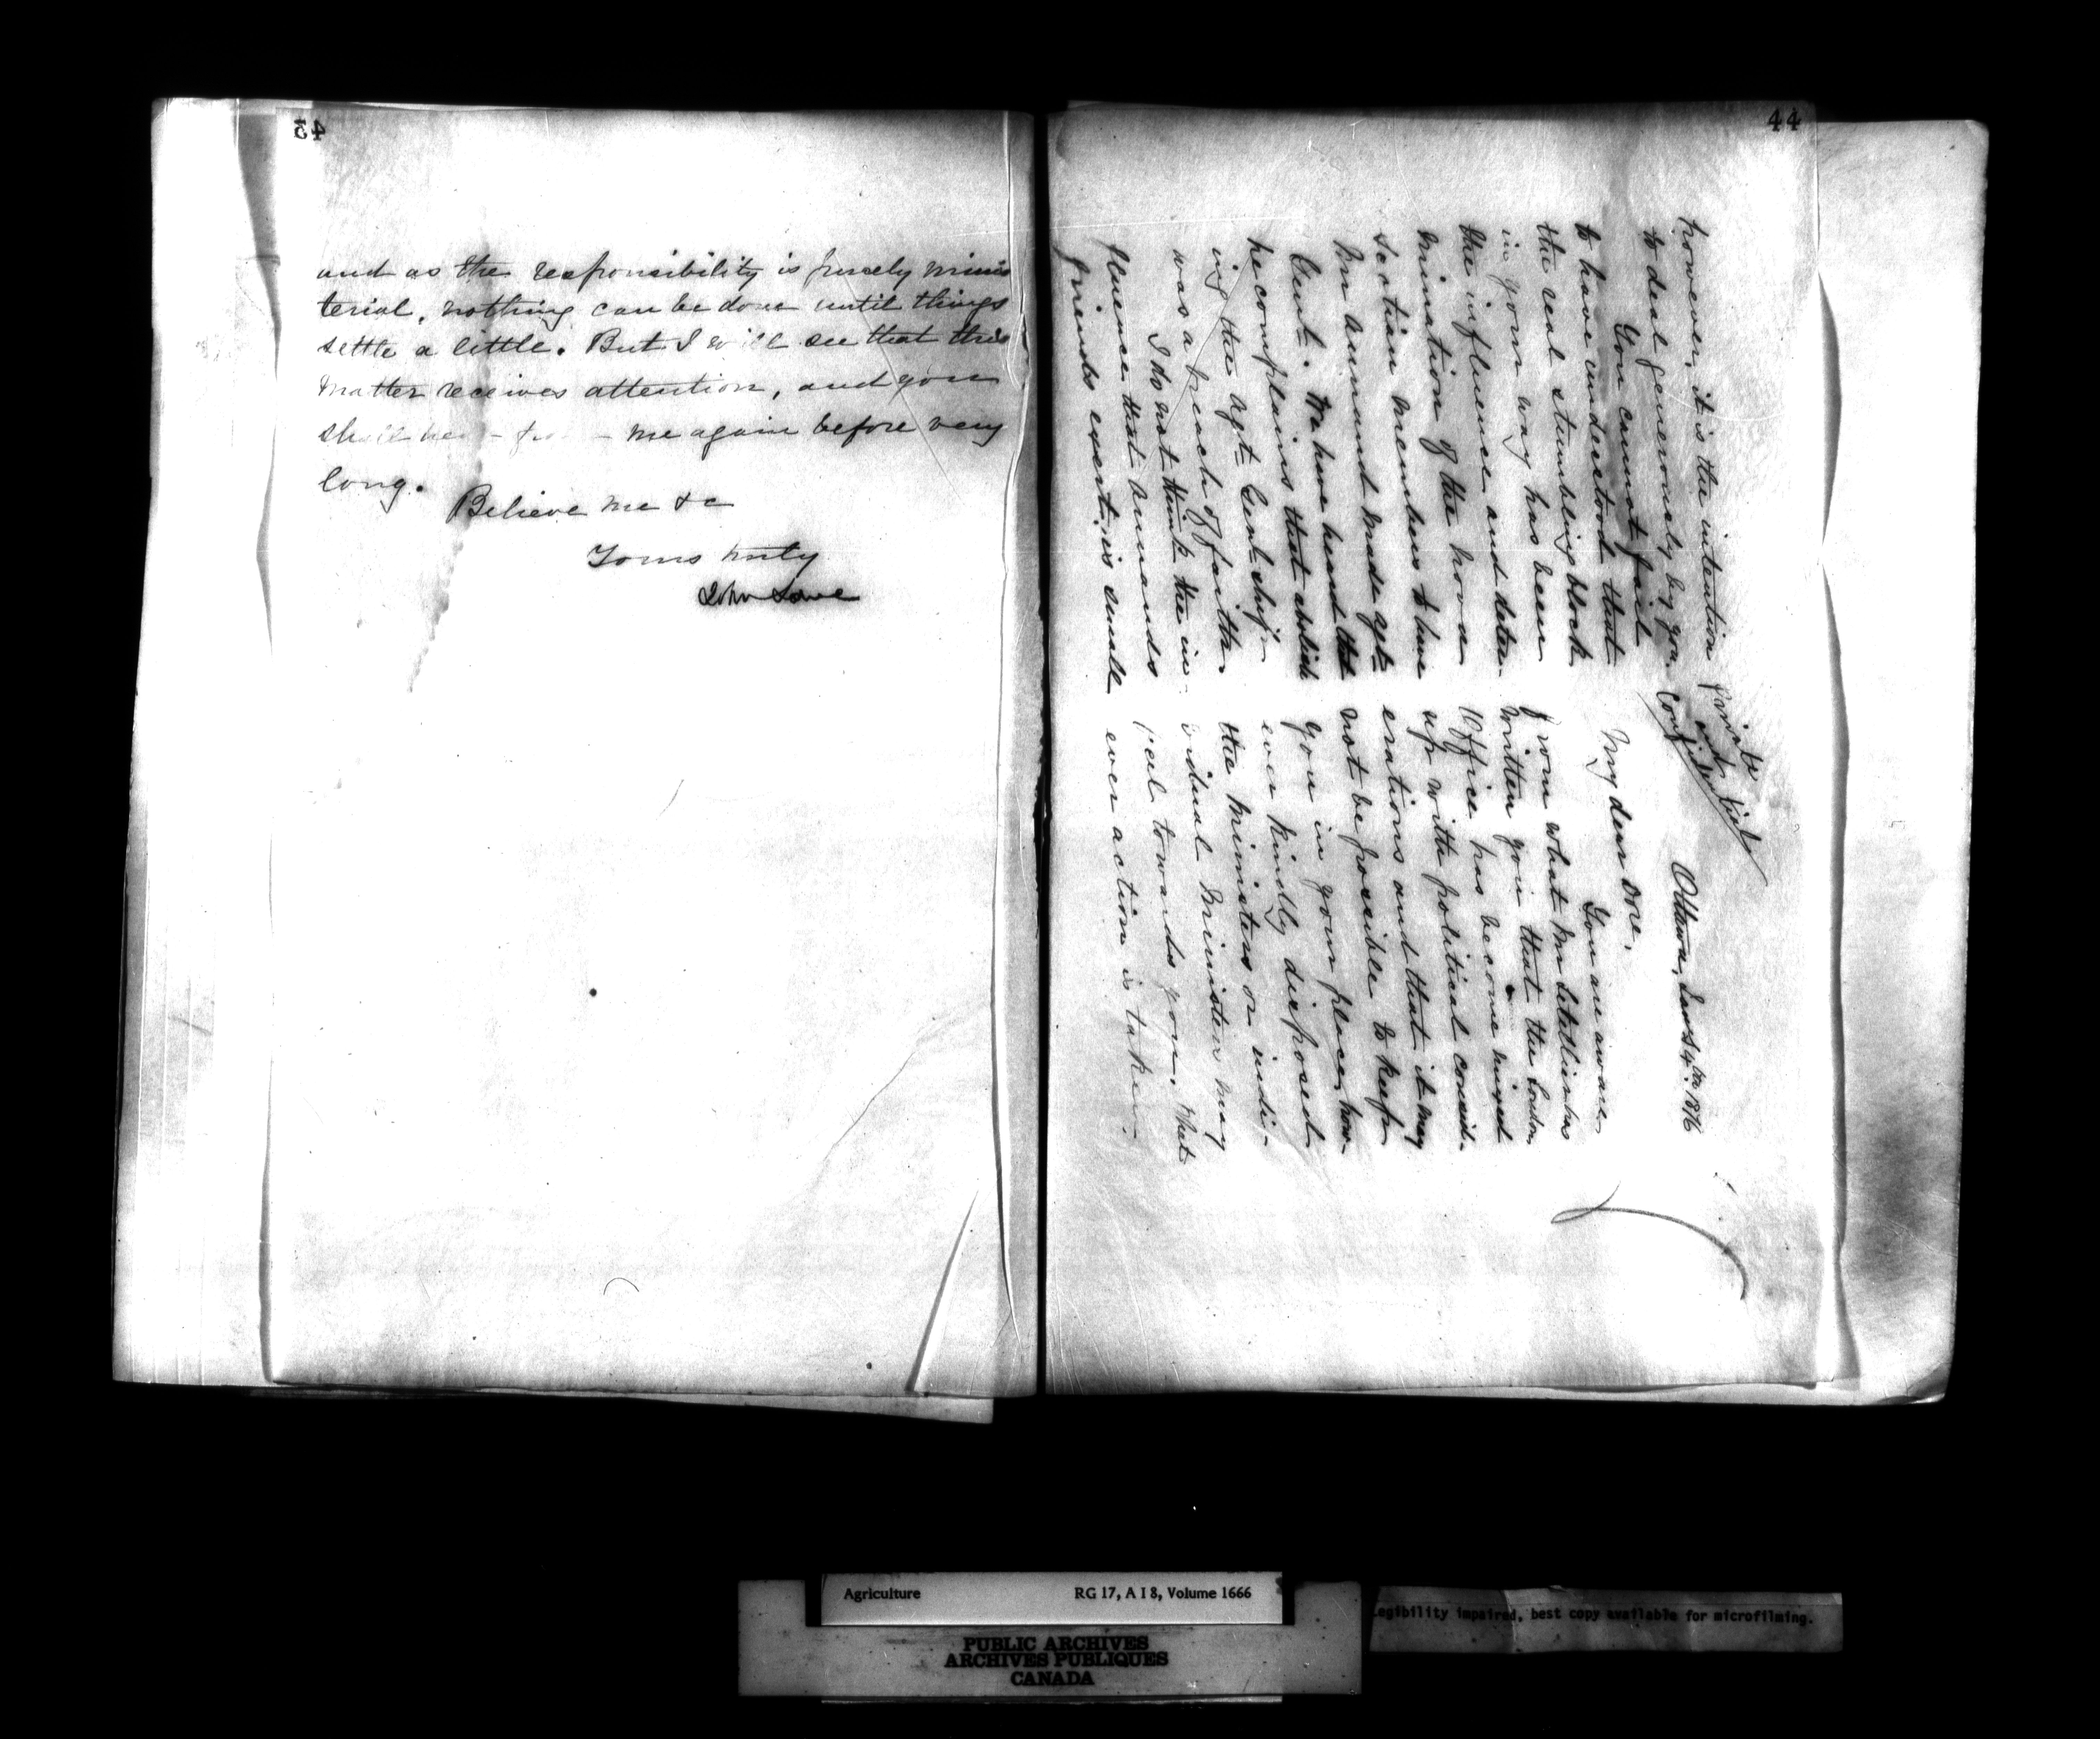 43
and as the responsibility is purely minis
terial, nothing can be done until things
settle a little. But I will see that this
matter receives attention, and you
shall me again before very
long.
Believe me &c
Yours truly
John Lowe
44
Private
and
Confidential
Ottawa, 4th 1876
My dear Dore.
You are aware,
from what Mr Letellier has
written you that the London
Office has become mixed
up with political consid-
erations and that it may
not be possible to keep
you in your place, how-
ever kindly disposed
the ministers or indi-
vidual Ministers may
feel towards you. What
ever action is taken.
however, it is the intention
to deal generously by you.
You cannot fail
to have understood that
the real stumbling block
in your way has been
the influence and deter-
mination of the Nova
Scotian members to have
Mr Annand made agt
Genl. We have heard that
he complains that abolish
ing the agt Genl ship
was a breach of faith.
I do not think the in-
fluence that Annands
friends exert, is small
Agriculture RG 17, A I 8, Volume 1666
PUBLIC ARCHIVES
ARCHIVES PUBLIQUES
CANADA
Legibility impaired, best copy available for microfilming.